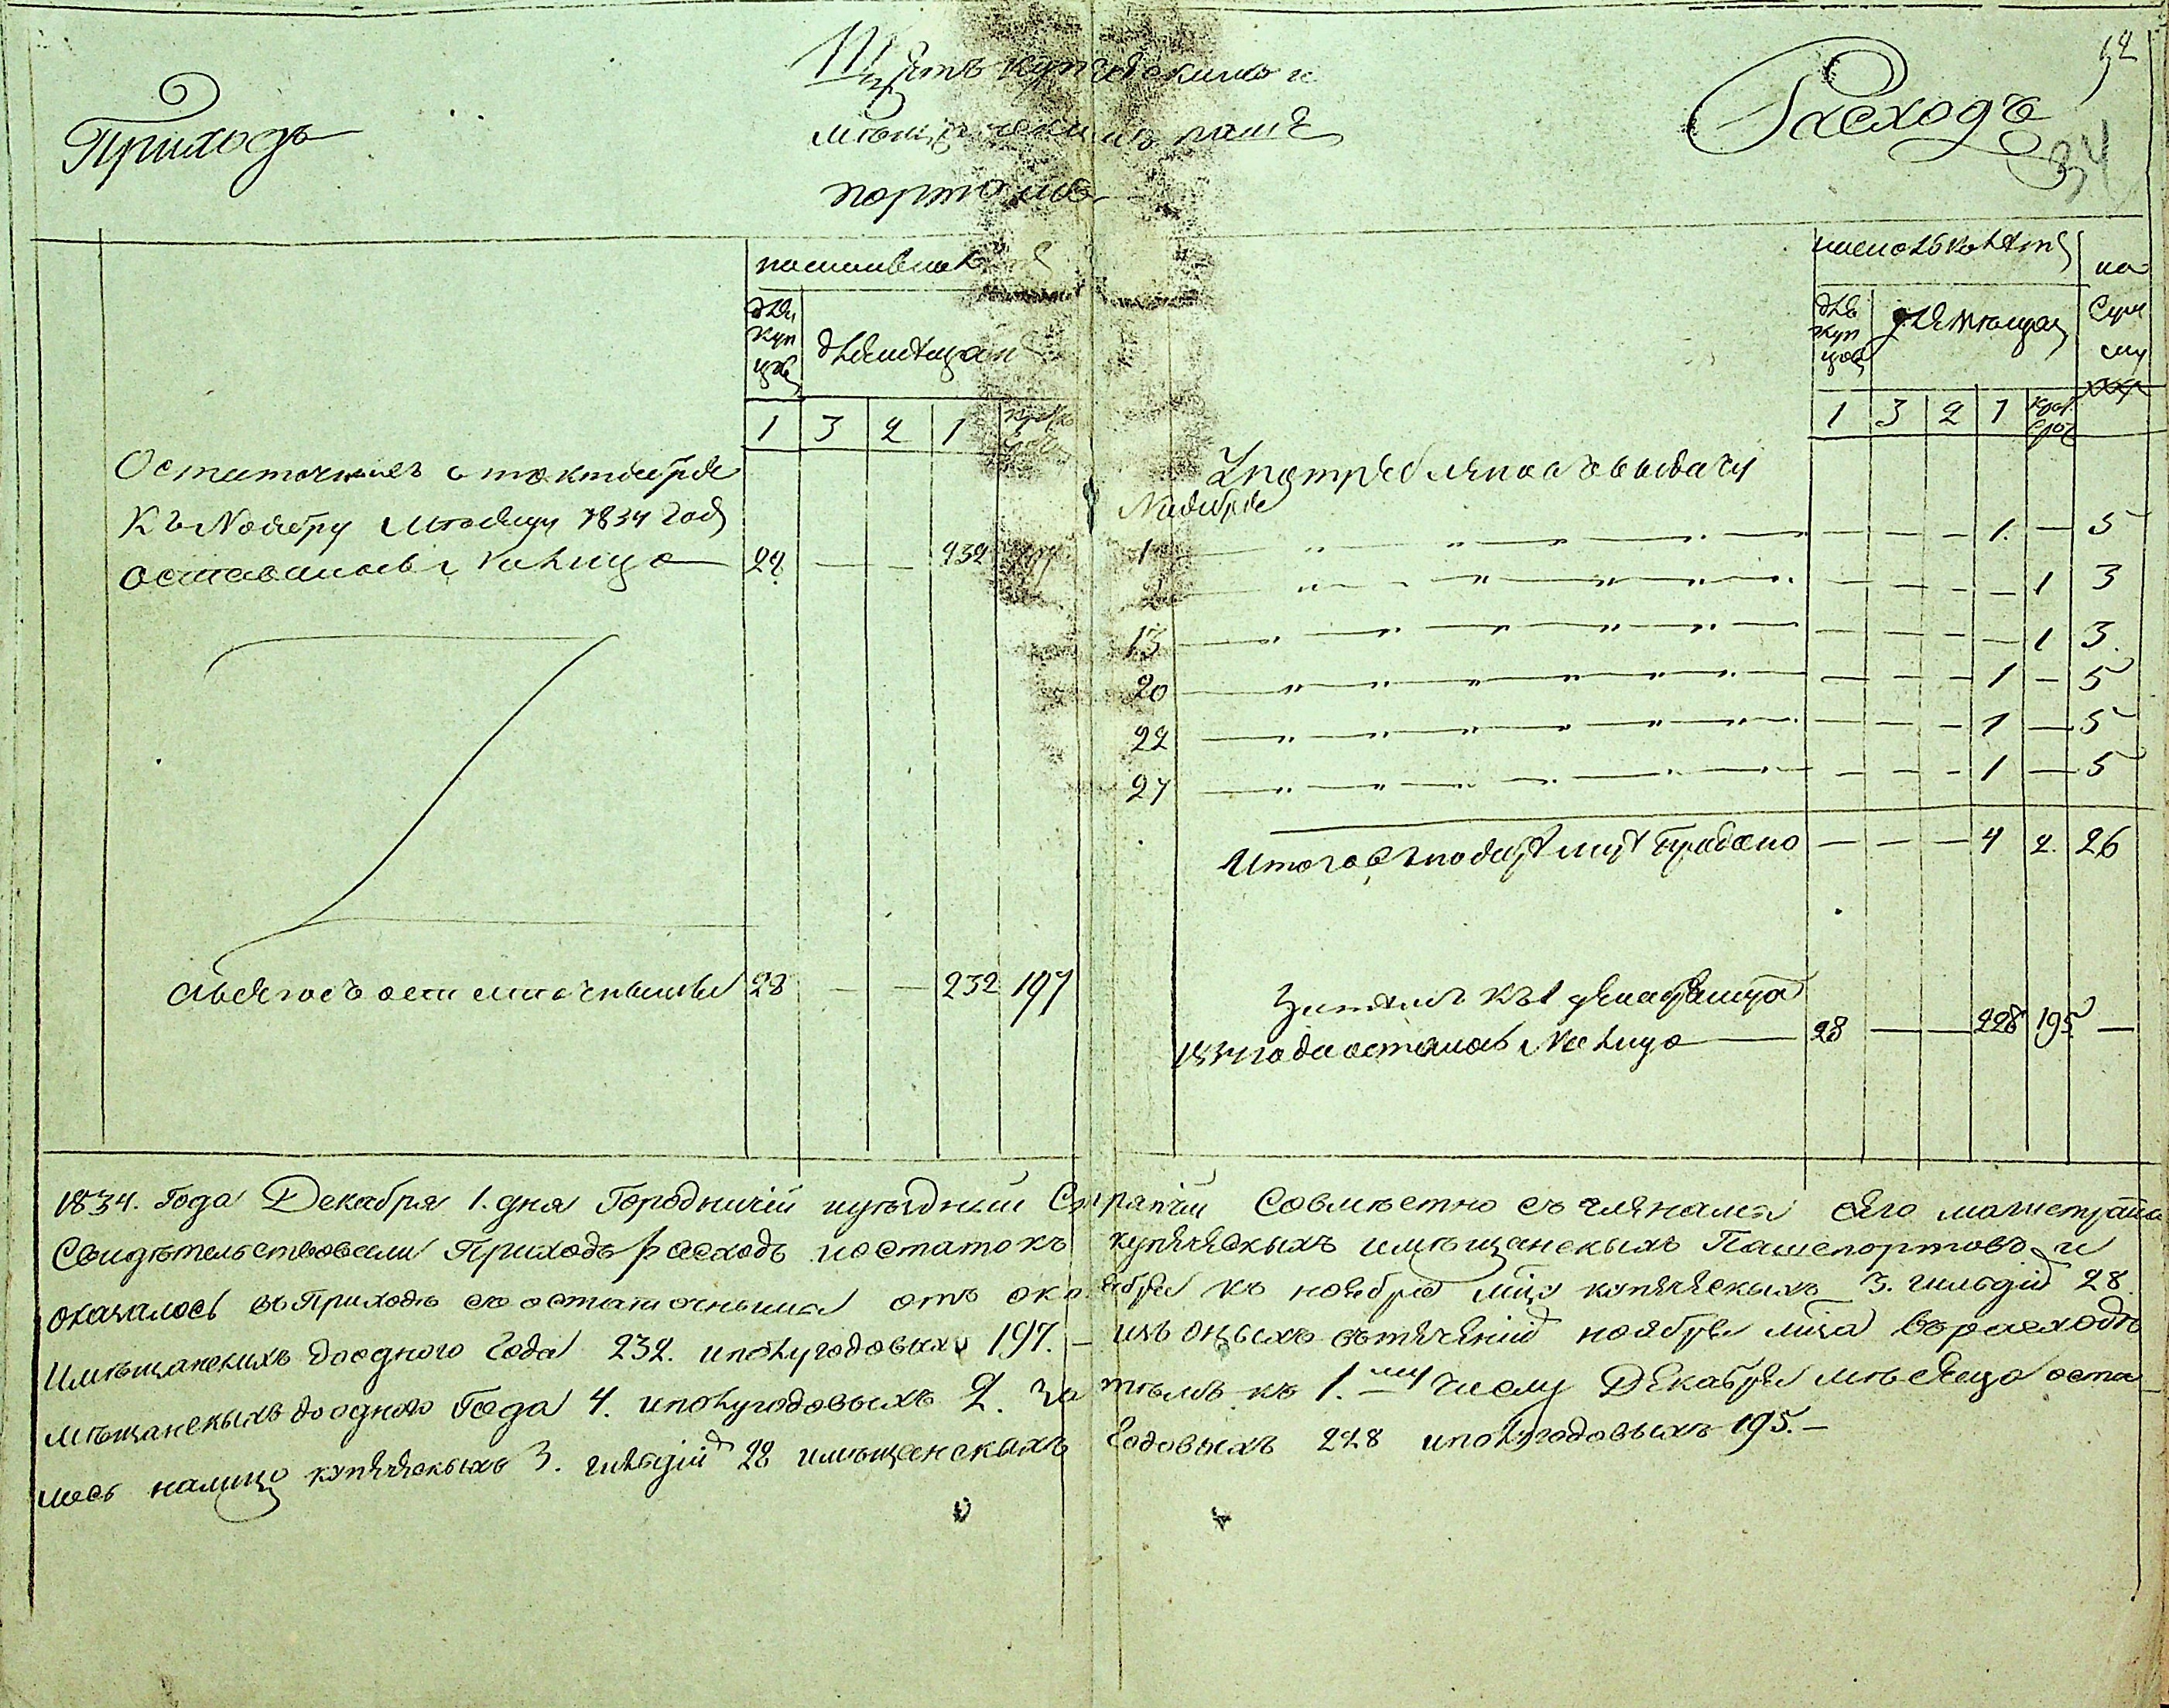 12
34
Приходъ
Щетъ купеческимъ и
мѣщанскимъ паше
портамъ
Расходъ
для
куп
цовъ
для мещан
1 3 2 1
Остаточныхъ отоктября
КъNоябрю мѣсяцу 1834 года
оставалось налицо 28 — — 232
Сысего съ остаточными 28 — — 232 197
на
Сум
му
для
куп
цовъ
для мещан
1 3 2 1 крат. сроч
Употреблено въ выдачу
Nоября
1 — — — 1. — 5
2 — — — — 1 3
13 — — — — 1 3.
20 — — — 1 — 5
22 — — — 1 — 5
27 — — — 1 — 5
Итого въ ноябре — — — 4 2. 26
Затемъ къ 1 декабря мца
1834 года осталось Налицо — 28 — — 228 195 —
1834. Года Декабря 1. дня Городничій иуѣздный Стряпчій Совмѣстно съ членами сего магистрата
Свидѣтельствовали Приходъ расходъ иостатокъ купеческыхъ имѣщанскыхъ Пашепортовъ и
оказалось въ Приходѣ съ остаточными отъ октября къ ноябрю мцу купеческыхъ 3. гильдій 28.
Имѣщанскихъ доодного Года 232. иполугодовыхъ 197. — изъ оныхъ втеченій ноября мца въ расходѣ
мѣщанскыхъ доодного Года 4. иполугодовыхъ 2. затѣмъ къ 1.му числу Декабря мѣсяца оста
лось налицо купеческыхъ 3. гильдій 28 имѣщанскыхъ Годовыхъ 228 иполугодовыхъ 195. —